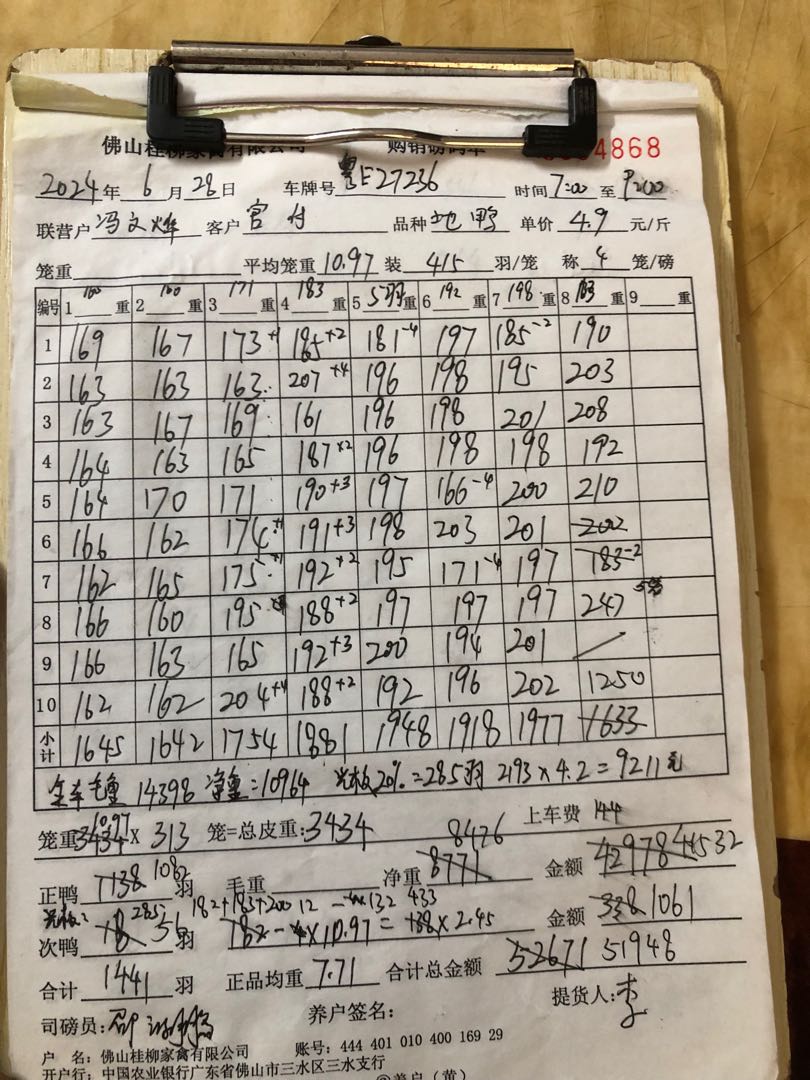 佛山桂柳家禽有限公司 购销磅码单 4868
2024年 6月 28日 车牌号 粤E27236 时间 7:00 至 9:00
联营户 冯文烽 客户 官付 品种 地鸭 单价 4.9 元/斤
笼重 平均笼重 10.97 装 415 羽/笼 称 4 笼/磅
编号 1 160 重 2 160 重 3 171 重 4 183 重 5 5羽重 6 192 重 7 198 重 8 183 重 9 重
1 169 167 173+1 185+2 181-4 197 185-2 190
2 163 163 163 207+4 196 198 195 203
3 163 167 169 161 196 198 201 208
4 164 163 165 187+2 196 198 198 192
5 164 170 171 190+3 197 166-4 200 210
6 166 162 174+1 191+3 198 203 201 202
7 162 165 175+1 192+2 195 171-4 197 183-2
8 166 160 195 188+2 197 197 197 247
9 166 163 165 192+3 200 194 201
10 162 162 204+4 188+2 192 196 202 1250
小计 1645 1642 1754 1881 1948 1918 1977 1633
全车毛重 14398 净重=10964 光板20%=285羽 2193×4.2=9211元
笼重 3434 10.97 × 313 笼=总皮重: 3434 8476 上车费 144
正鸭 1138 1082 羽 毛重 净重 8771 金额 42978 41532
光板: 285 182+183+200 12 132 433
次鸭 18 56 羽 182-4×10.97=138×2.45 金额 338 1061
合计 1441 羽 正品均重 7.71 合计总金额 52671 51948
司磅员: 养户签名: 提货人: 李
户 名: 佛山桂柳家禽有限公司 账号: 444 401 010 400 169 29
开户行: 中国农业银行广东省佛山市三水区三水支行
②养户(黄)